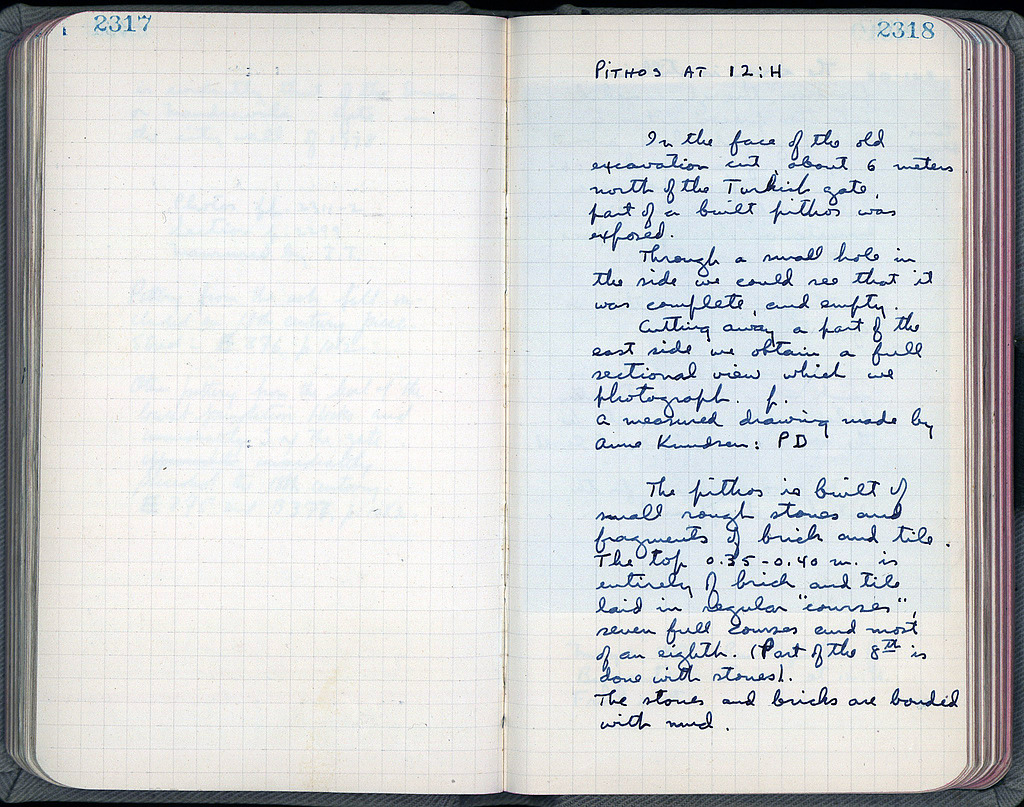 2317
2318
PITHOS AT 12:H
In the face of the old
excavation cut, about 6 meters
north of the Turkish gate,
part of a built pithos was
exposed.
Through a small hole in
the side we could see that it
was complete, and empty.
Cutting away a part of the
east side we obtain a full
sectional view which we
photograph. p.
a measured drawing made by
Anne Knudsen: PD
The pithos is built of
small rough stones and
fragments of brick and tile.
The top 0.35-0.40 m. is
entirely of brick and tile
laid in regular "courses",
seven full courses and most
of an eighth. (Part of the 8th is
done with stones).
The stones and bricks are bonded
with mud.